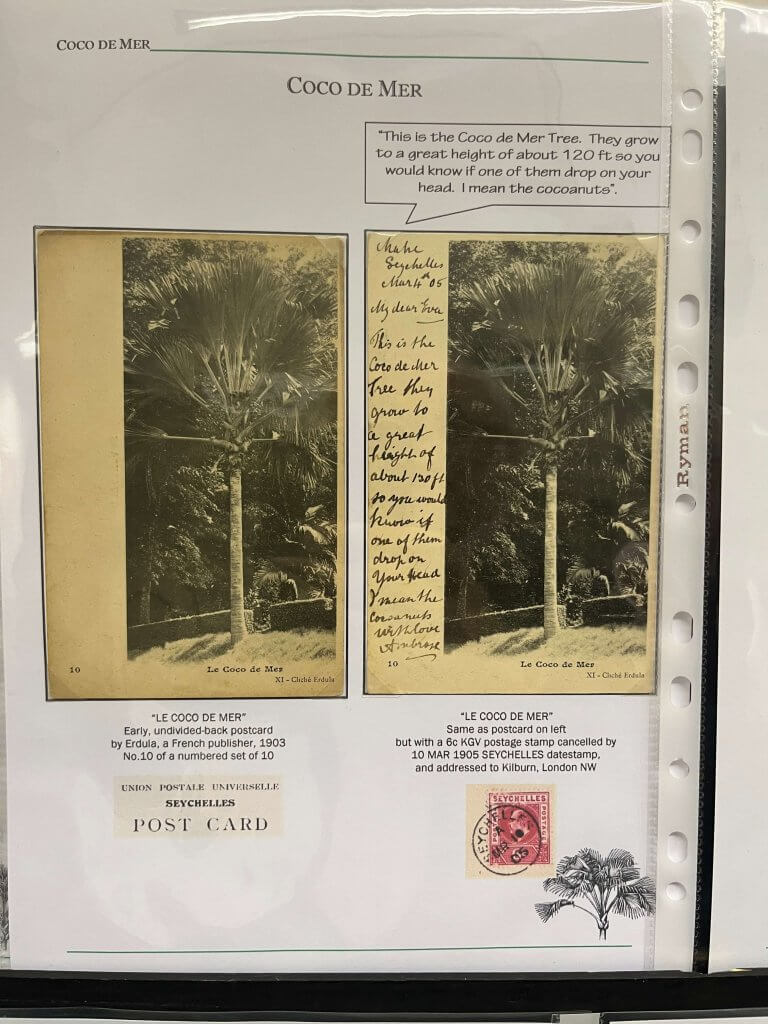 COCO DE MER
COCO DE MER
"This is the Coco de Mer Tree. They grow
to a great height of about 120 ft so you
would know if one of them drop on your
head. I mean the cocoanuts".
Mahe
Seychelles
Mar 4th 05
My dear Eva
This is the
Coco de Mer
Tree they
grow to
a great
height of
about 120 ft
so you would
know if
one of them
drop on
your head
I mean the
cocoanuts
with love
Ambrose
10
Le Coco de Mer
XI - Cliché Erdula
10
Le Coco de Mer
XI - Cliché Erdula
"LE COCO DE MER"
Early, undivided-back postcard
by Erdula, a French publisher, 1903
No.10 of a numbered set of 10
UNION POSTALE UNIVERSELLE
SEYCHELLES
POST CARD
"LE COCO DE MER"
Same as postcard on left
but with a 6c KGV postage stamp cancelled by
10 MAR 1905 SEYCHELLES datestamp,
and addressed to Kilburn, London NW
SEYCHELLES
POSTAGE
SEYCHELLES
A
MR 10
05
Ryman